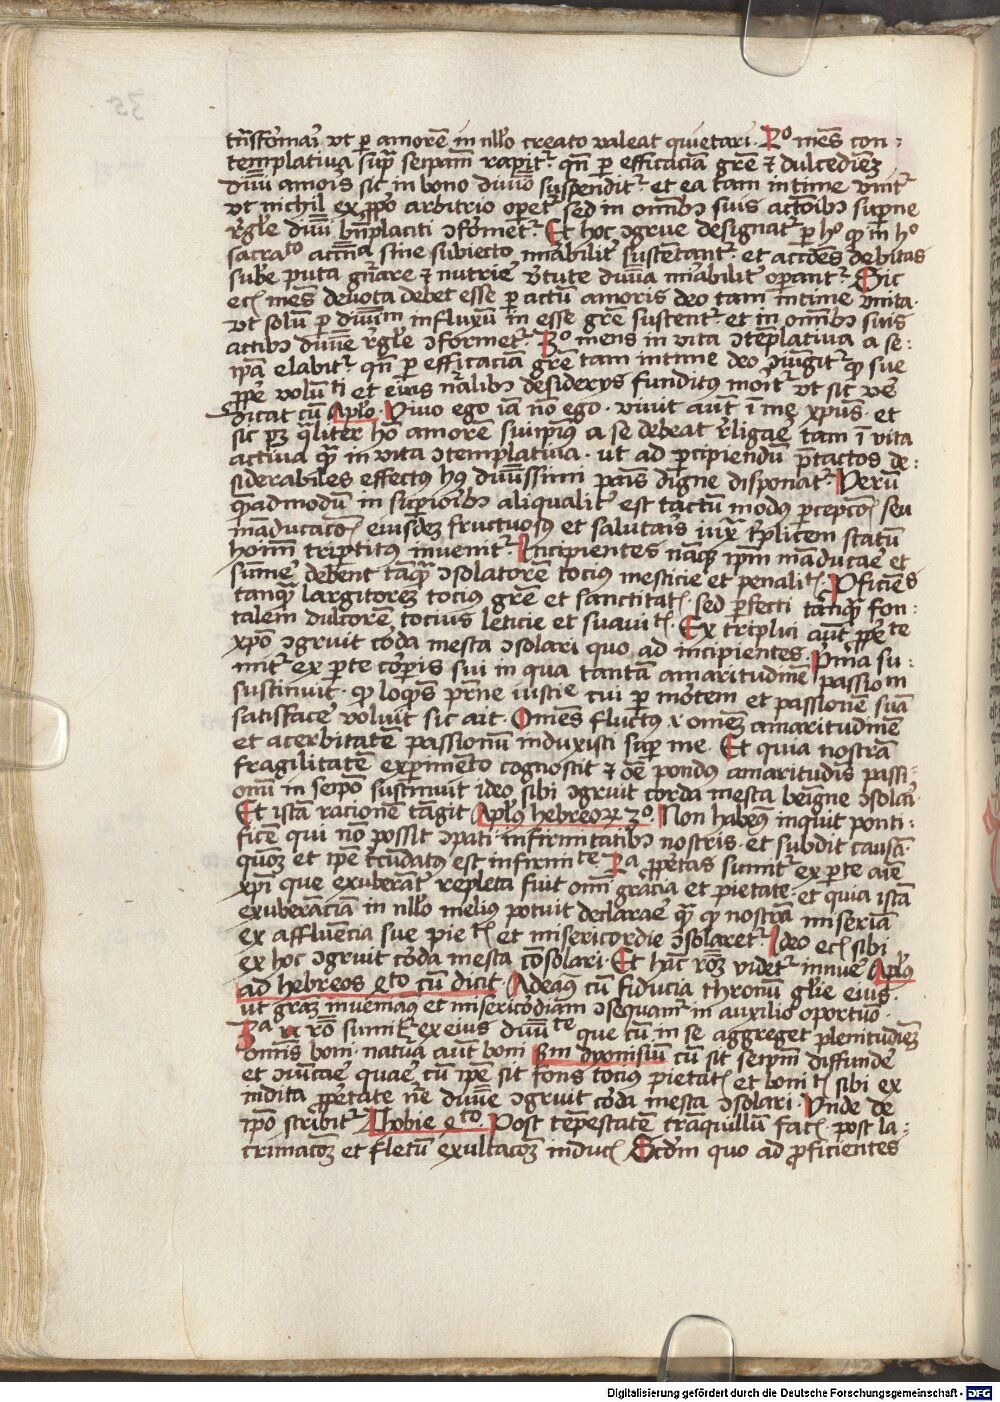 tn̄sformaı̄ vt p amorē in nllo creato valeat quietari · 2o mēs con:
templatiua sup̄ seip̄am rapit᷑ · qn̄ p efficaciā gr̄e ⁊ dulcediēꝫ
diuı̄ amoıs sic in bono diuı̄o suspendit᷑ · et ea tam intime vnit᷑
vt nichil ex p̄p̄o arbitrio opet᷑ sed in omībꝫ suis actōibꝫ sup̄ne
r̄gl̄e diuı̄ bn̄placiti ↄformet᷑ · Et hoc ↄgrue designat᷑ p ho qꝫ in ho
sacrato accn̄a sine subiecto mı̄abilit᷑ sustentant᷑ · et accidēs debitas
sub̄e puta gn̄are ⁊ nutrı̄e v̄tute diuı̄a mı̄abilit᷑ opant᷑ · Sic
ecꝭ mēs deuota debet esse p actū amoris deo tam intime vnita ·
vt solū p diuı̄m influxū in esse gr̄e sustent᷑ · et in omībꝫ suis
actibꝫ diuı̄e r̄gl̄e ↄformet᷑ · 3o mens in vita ↄtēplatiua a se:
ip̄a elabit᷑ qn̄ p efficaciā gr̄e tam intime deo ↄiūgit᷑ qꝫ sue
p̄p̄e volūti et eius nr̄alibꝫ desiderijs funditus morit᷑ vt sic v̄e
dicat cū Aplo · Viuo ego iā nō ego · viuit aūt ī me xp̄us · et
sic pꝫ qliter hō amorē suip̄ius a se debeat r̄ligare tam ī vita
actiua qꝫ in vita ↄtemplatiua · ut ad pcipiendū p̄tactos de:
siderabiles effectus hꝰ diuı̄ssimi panis digne disponat᷑ · Verū
qēadmodū in supioribꝫ aliqualit᷑ est tactū modus pcepcōıs seu
māducacōıs eiusdeꝫ fructuosus et salutaris iux̄ t̄plicem statū
hoīm tripertitus inuenit᷑ · Incipientes nāqꝫ ip̄m māducare et
sumere debent tāqꝫ ↄsolatorē tocius mesticie et penalitꝭ · Proficiēs
tanqꝫ largitoreꝫ tocius gr̄e et sanctitatꝭ · sed pfecti tāqꝫ fon:
talem dulcorē tocius leticie et suauitꝭ · Ex triplici aūt p̄p̄te
xp̄o ↄgruit corda mesta ↄsolari quo ad incipientes · Prima su:
mit᷑ ex p̄te corpis sui in qua tantā amaritudinē passiom
sustinuit · qꝫ loqēs p̄rne iusticie cui p mortem et passionē suā
satisfacere voluit sic ait · Omēs fluctus ⁊ omeꝫ amaritudinē
et acerbitatē passionū induxisti sup me · Et quia nostrā
fragilitatē expimēto cognoscit ⁊ oēm pondus amaritudıs passi:
onū in seipo sustinuit ideo sibi ↄgruit corda mesta benigne ↄsolari ·
Et istā racionē tāgit Aplus hebreoꝝ 3o · Non habemꝰ inquit ponti:
ficē qui nō possit ↄpati infirmitatibꝫ nostris · et subdit causā
quoꝫ et ip̄e c̄cūdatus est infirmite · 2a p̄p̄etas sumit᷑ ex p̄te aīe
xp̄i que exuberāt repleta fuit omı̄ gracia et pietate · et quia istā
exuberāciā in nllo melius potuit declarare qꝫ qꝫ nostrā miseriā
ex affluencia sue pietꝭ et misericordie ↄsolaret᷑ · Ideo ecꝭ sibi
ex hoc ↄgruit corda mesta consolari · Et hāc roēꝫ videt᷑ innuere Aplus
ad hebreos 4to cū dicit · Adeamꝰ cū fiducia thronū gl̄ie eius ·
ut graꝫ inueniamꝰ et misericordiam ↄsequamur in auxilio oportuo ·
3a rō sumit᷑ ex eius diuı̄te que cū in se aggreget plenitudiēꝫ
omnis boni · natura aūt boni scdm dyonisiū cū sit seip̄m diffundere
et ↄiūcare quare cū ip̄e sit fons tocius pietatꝭ et bonitꝭ sibi ex
indita p̄p̄etate nr̄e diuı̄e ↄgruit corda mesta ↄsolari · Vnde de
ip̄o scribit᷑ Thobie 4to · Post tēpestatē tranquillū facꝭ post la:
crimacoēꝫ et fletū exultacoēꝫ inducꝭ · Scdm quo ad proficientes
Digitalisierung gefördert durch die Deutsche Forschungsgemeinschaft - DFG